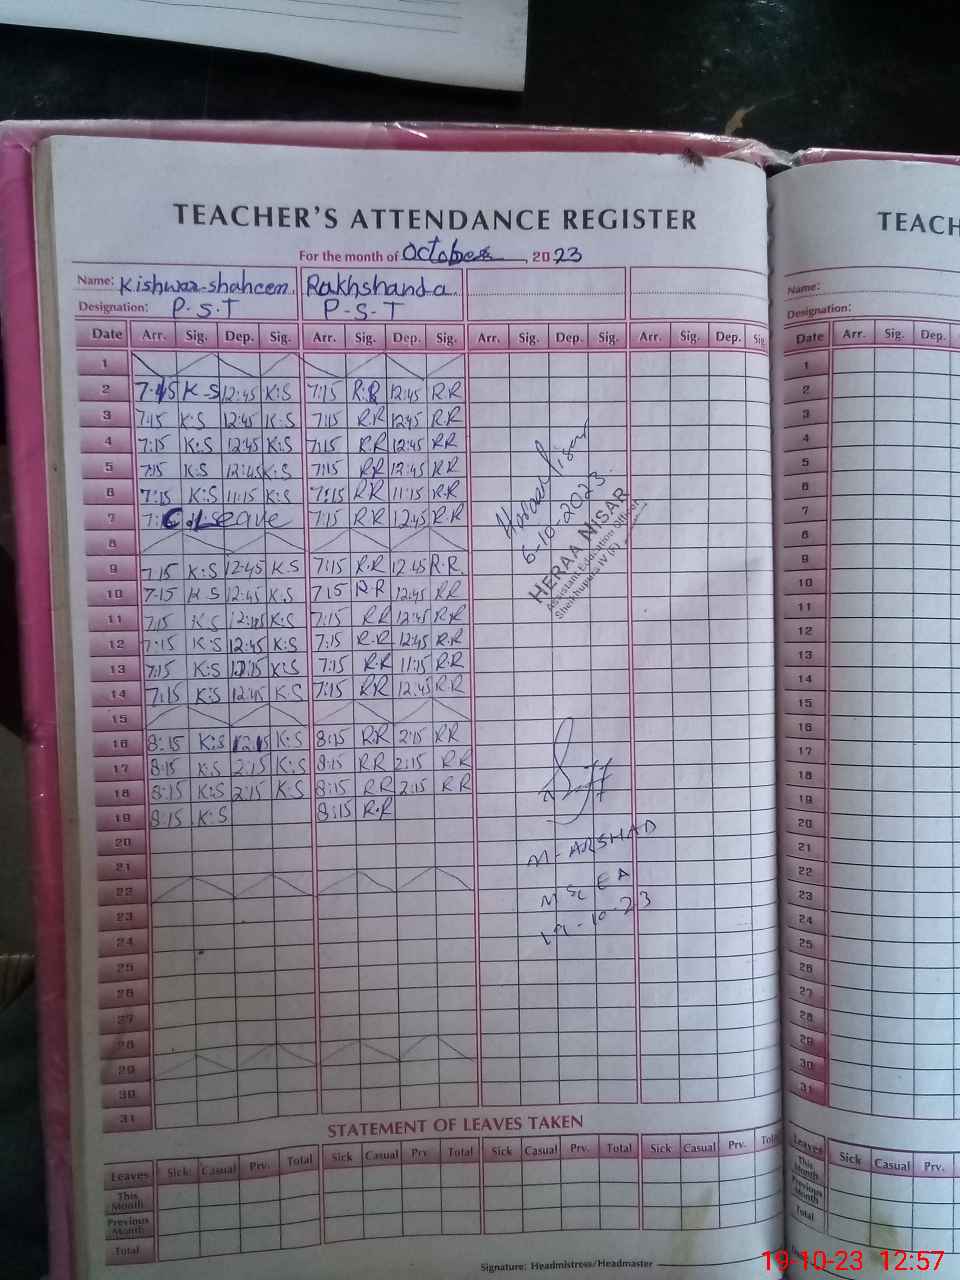 TEACHER'S ATTENDANCE REGISTER
TEACH
For the month of October, 2023
Name: Kishwar shaheen Rakhshanda
Name:
Designation: P.S.T P-S-T
Designation:
Date Arr. Sig. Dep. Sig. Arr. Sig. Dep. Sig. Arr. Sig. Dep. Sig. Arr. Sig. Dep. Sig.
Date Arr. Sig. Dep.
1
2 K-S 12:45 K:S 7:15 R.R 12:45 R.R
3 7:15 K:S 12:45 K:S 7:15 R.R 12:45 R.R
4 7:15 K:S 12:45 K:S 7:15 R.R 12:45 RR
5 7:15 K:S 12:45 K:S 7:15 RR 12:45 RR
6 7:15 K:S 11:15 K:S 7:15 RR 11:15 R.R
7 C.Leave 7:15 RR 12:45 R.R
8
9 7:15 K:S 12:45 K.S 7:15 R.R 12:45 R.R.
10 7:15 K.S 12:45 K:S 7:15 R.R 12:45 RR
11 7:15 K.S 12:45 K:S 7:15 RR 12:45 R.R
12 7:15 K:S 12:45 K:S 7:15 R.R 12:45 R.R
13 7:15 K:S K:S 7:15 R.R 11:15 R.R
14 7:15 K:S 12:45 K.S 7:15 RR 12:45 R.R
15
16 8:15 K:S K:S 8:15 RR 2:15 RR
17 8:15 K:S 2:15 K:S 8:15 RR 2:15 RR
18 8:15 K:S 2:15 K:S 8:15 RR 2:15 RR
19 8:15 K:S 8:15 R.R
20
21
22
23
24
25
26
27
28
29
30
31
6-10-2023
HERAA NISAR
Assistant Education Officer
Sheikhupura IV (F)
M-ARSHAD
MSc EA
19-10-23
1
2
3
4
5
6
7
8
9
10
11
12
13
14
15
16
17
18
19
20
21
22
23
24
25
26
27
28
29
30
31
STATEMENT OF LEAVES TAKEN
Leaves Sick Casual Prv. Total Sick Casual Prv. Total Sick Casual Prv. Total Sick Casual Prv. Total
This Month
Previous Month
Total
Leaves Sick Casual Prv.
This Month
Previous Month
Total
Signature: Headmistress/Headmaster
19-10-23 12:57